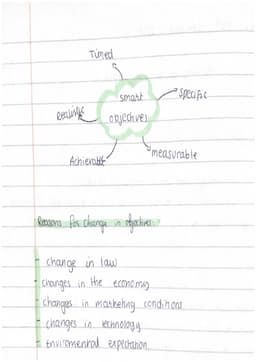 Timed
Specific
smart
objectives
Realistic
Achievable
measurable
Reasons for change in objectives
- change in law
- changes in the economy
- changes in marketing conditions
- changes in technology
- Enviromental expectation